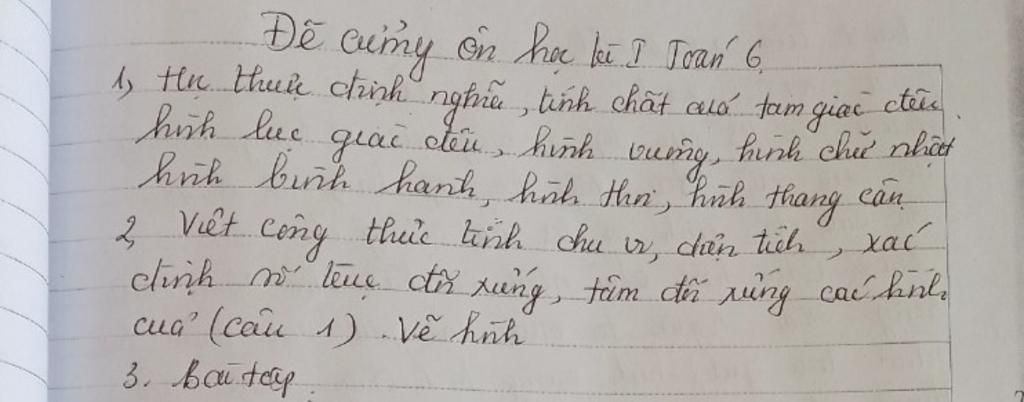 Đề cương ôn học kì I Toán 6
1, Học thuộc định nghĩa, tính chất của tam giác đều
hình lục giác đều, hình vuông, hình chữ nhật
hình bình hành, hình thoi, hình thang cân
2, Viết công thức tính chu vi, diện tích, xác
định số trục đối xứng, tâm đối xứng các hình
của (câu 1). Vẽ hình
3. Bài tập